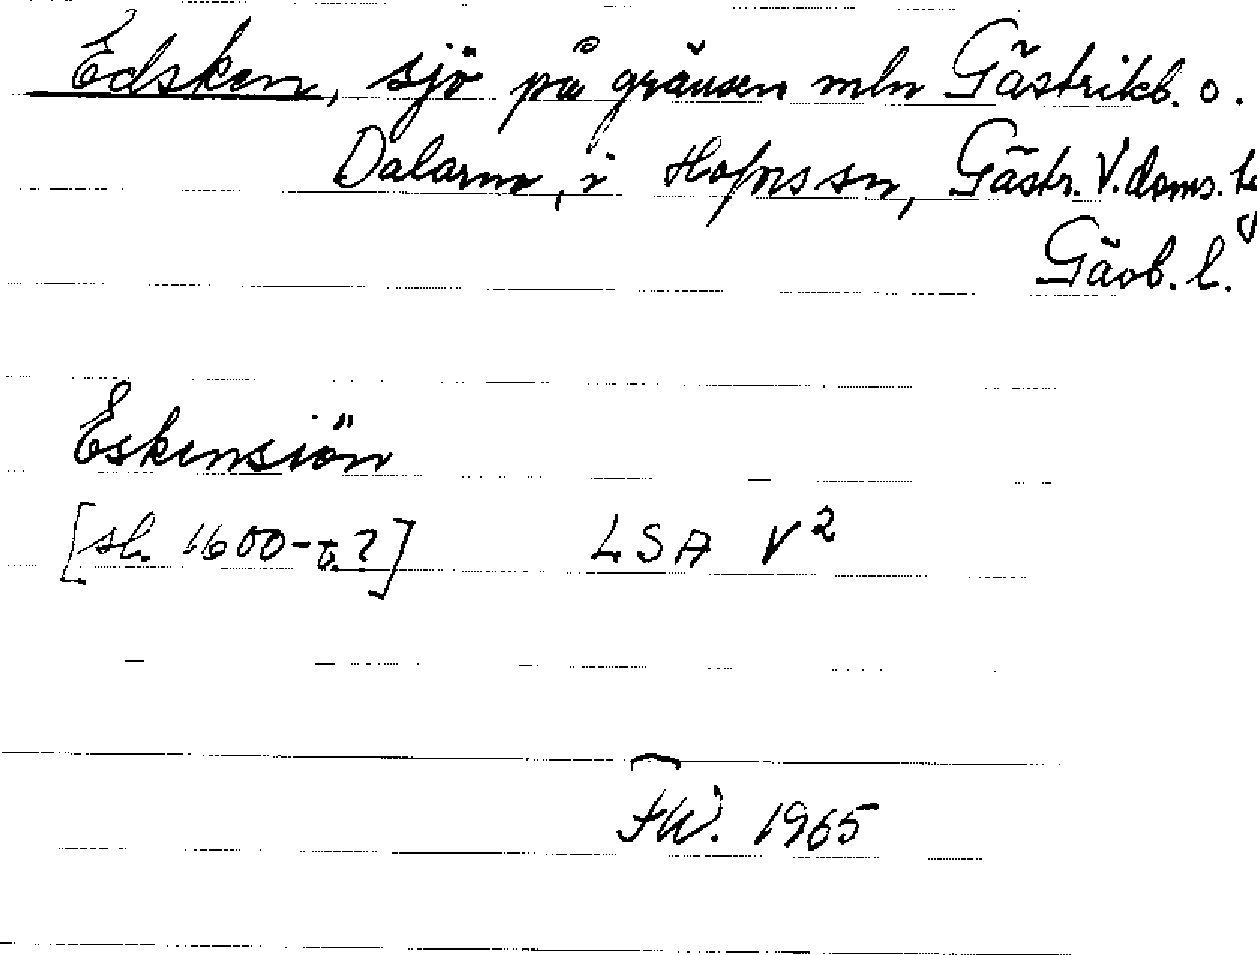 Edsken, sjö på gränsen mln Gästrikl. o.
Dalarna, i Hofors sn, Gästr. V. doms.
Gävb. l.
Eskensiön
[sl. 1600-t.?] LSA V2
FW. 1965